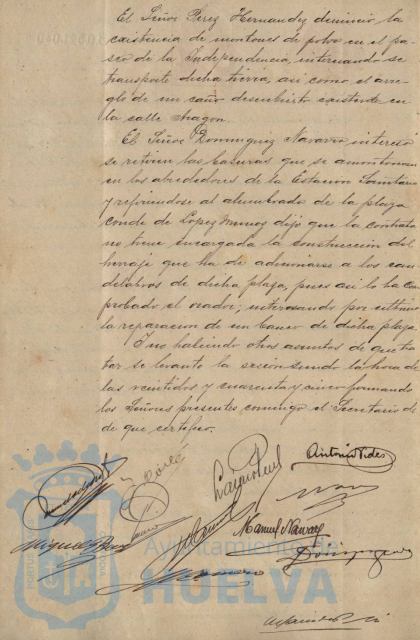 El Señor Perez Hernandez denunció la
existencia de montones de polvo en el pa-
seo de la Independencia, interesando se
transporte dicha tierra, asi como el arre-
glo de un caño descubierto existente en
la calle Aragon.
El Señor Dominguez Navarro interesó
se retiren las basuras que se amontonan
en los alrededores de la Estacion Sanitaria
y refiriendose al alumbrado de la plaza
conde de López Muñoz dijo que la contrata
no tiene encargada la construccion del
herraje que ha de adicionarse a los can-
delabros de dicha plaza, pues asi lo ha com-
probado el orador; interesando por ultimo
la reparacion de un banco de dicha plaza.
Y no habiendo otros asuntos de que tra-
tar se levantó la sesion siendo la hora de
las veintidos y cuarenta y cinco firmando
los Señores presentes conmigo el Secretario de
de que certifico.
Antonio Vides
Manuel Navarro
Miguel
Ayuntamiento de
HUELVA